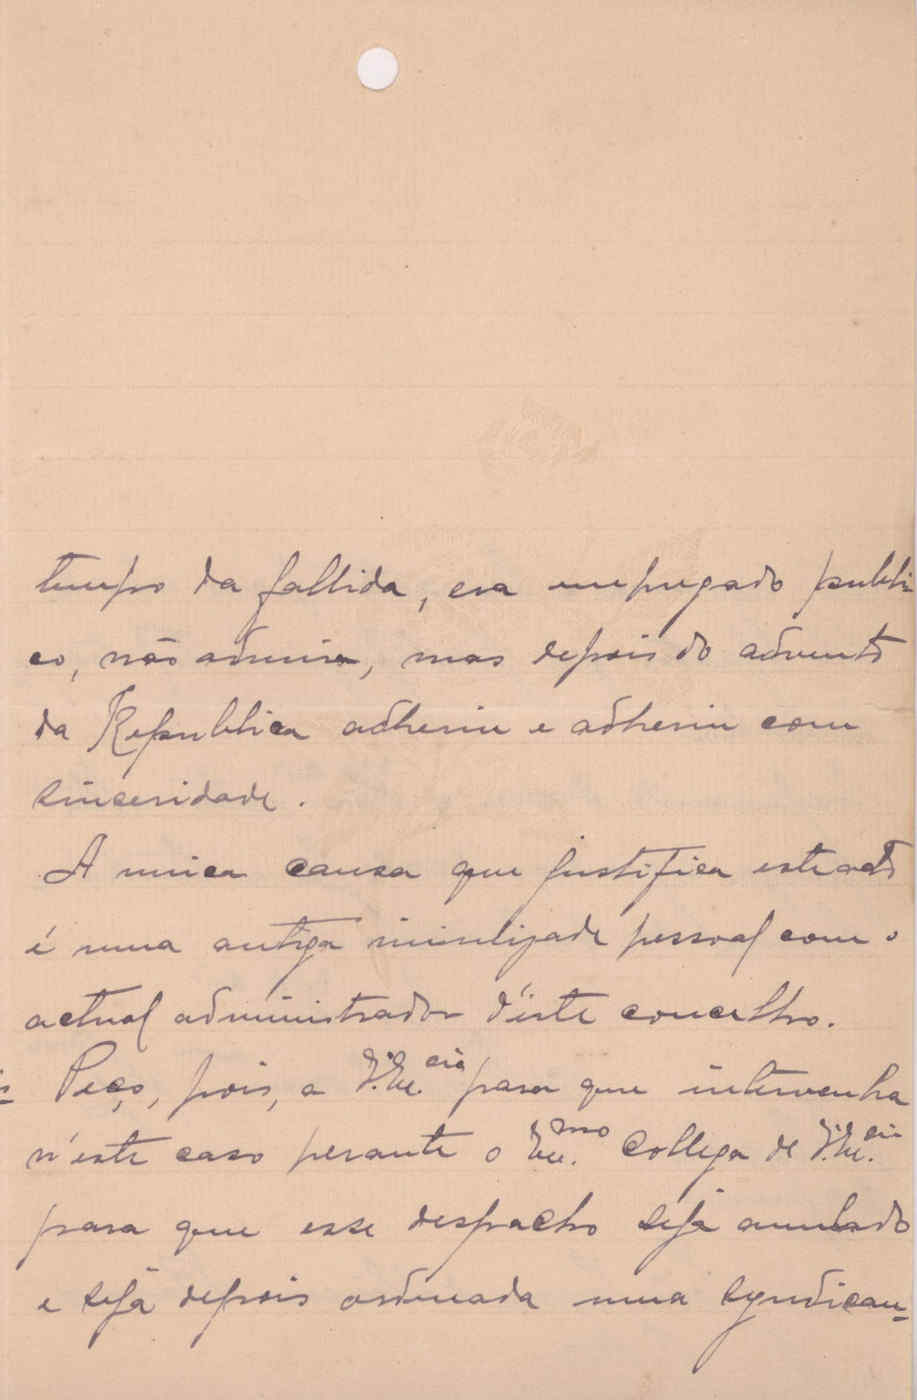 tempo da fallida, era empregado publi-
co, não admira, mas depois do advento
da Republica adheriu e adheriu com
sinceridade.
A unica causa que justifica este acto
é uma antiga inimizade pessoal com o
actual administrador d'este concelho.
Peço, pois, a V. Ex.cia para que intervenha
n'este caso perante o Ex.mo Collega de V. Ex.cia
para que esse despacho seja annulado
e seja depois ordenada uma syndican-